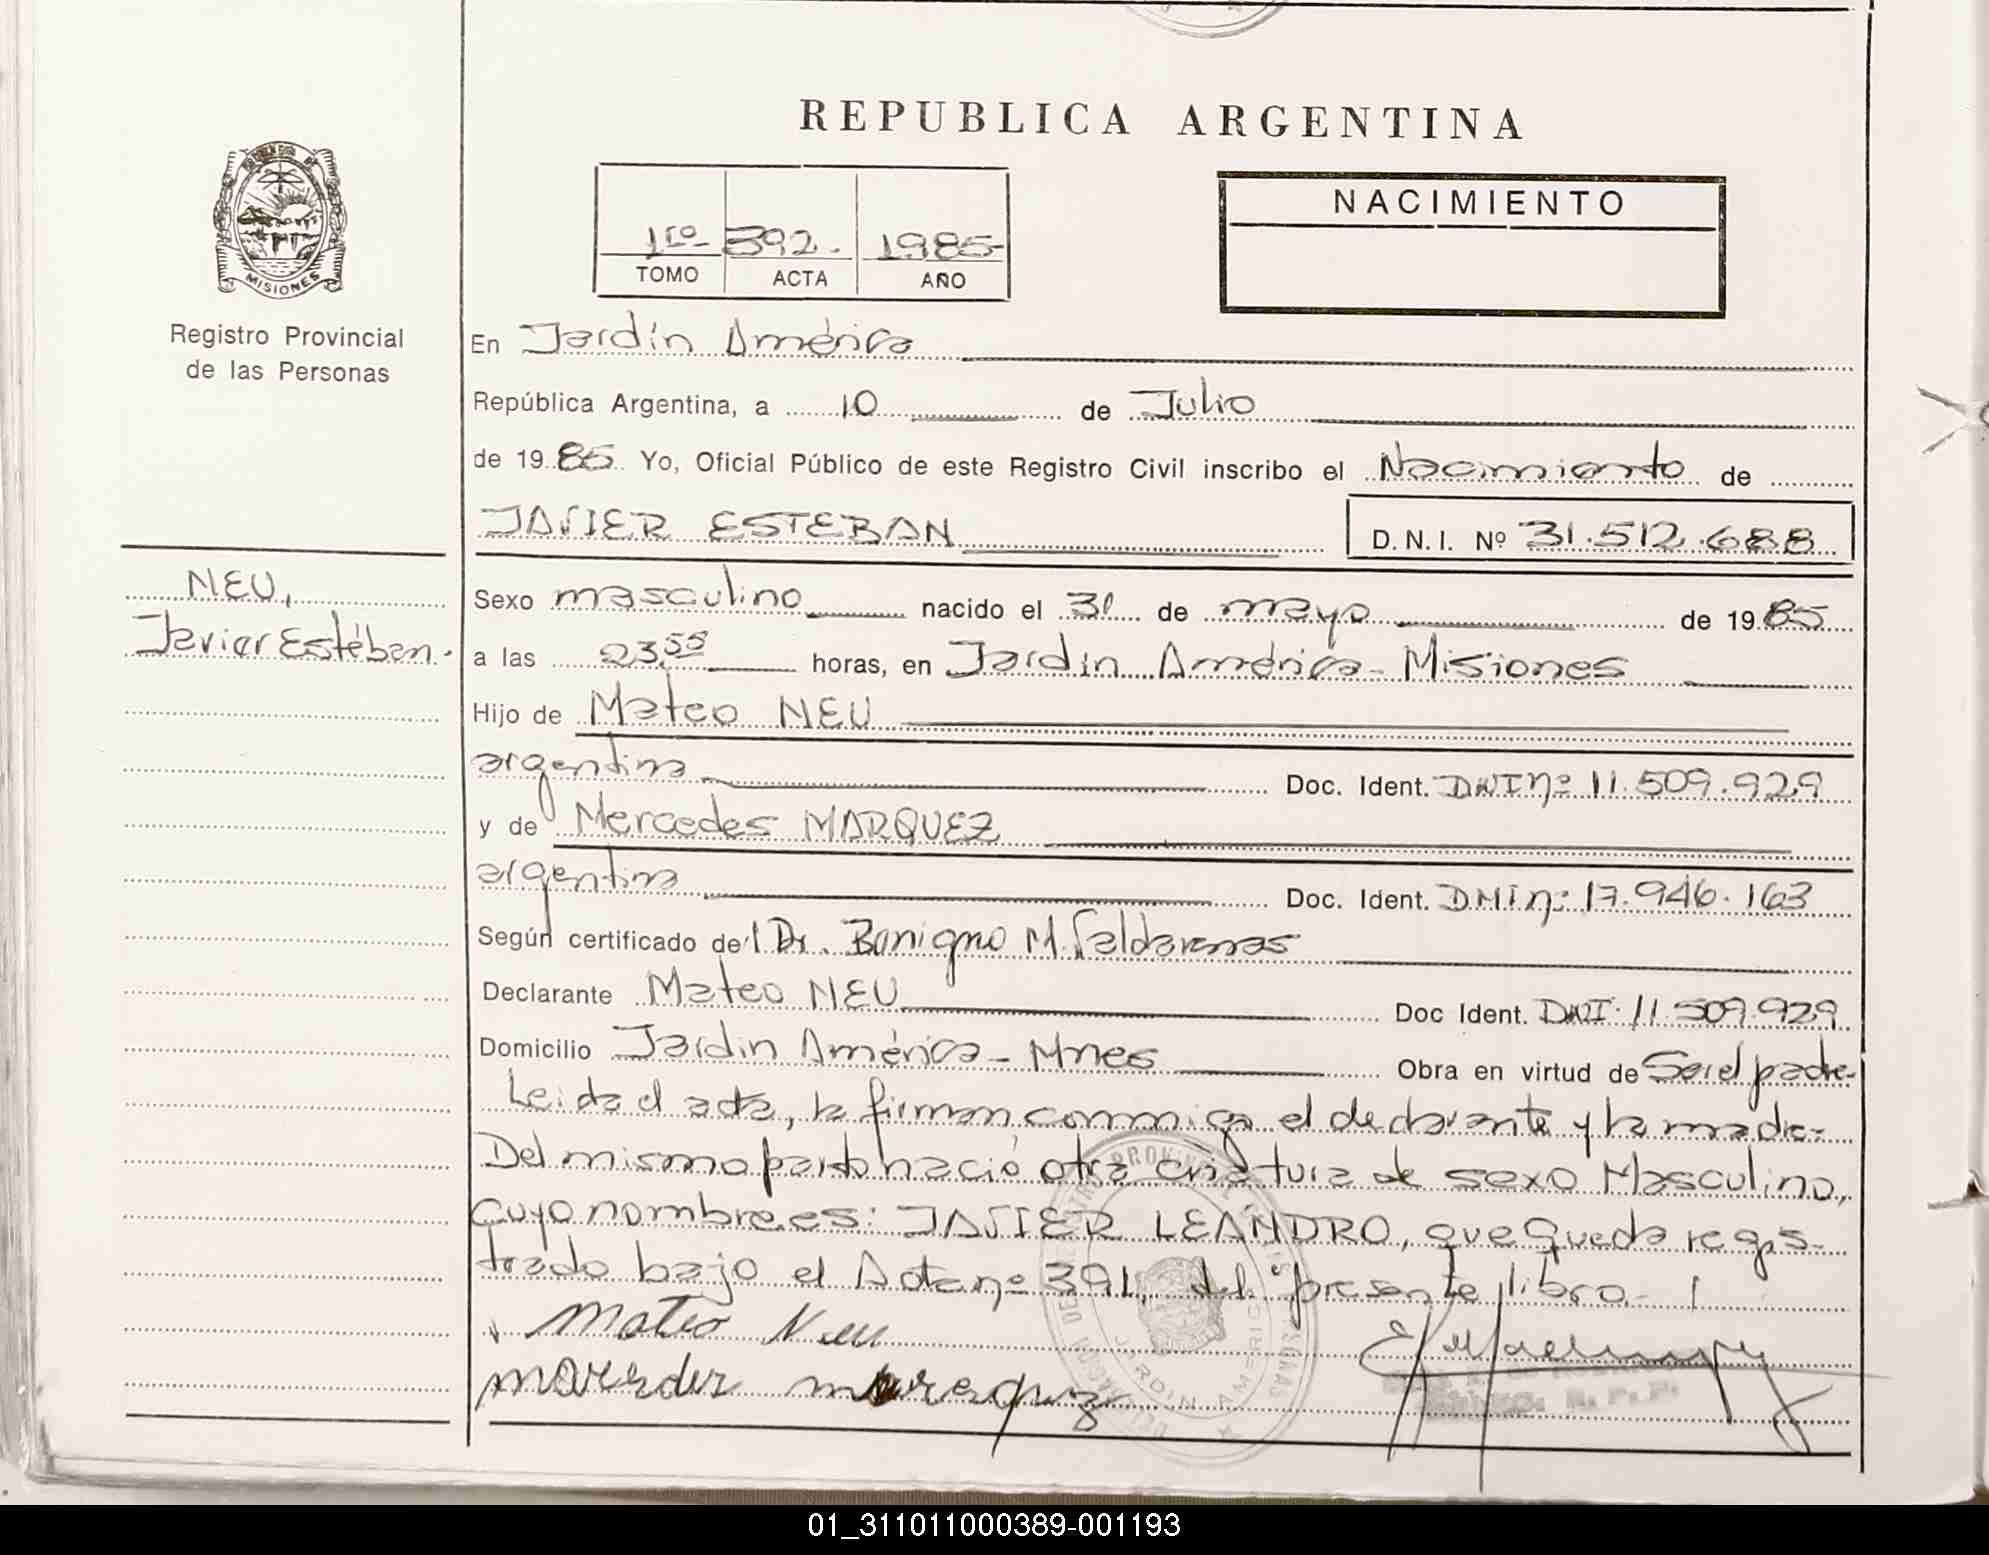 REPUBLICA ARGENTINA
MISIONES
Registro Provincial
de las Personas
1ro 392. 1985
TOMO ACTA AÑO
NACIMIENTO
En Jardín América
República Argentina, a 10 de Julio
de 1985 Yo, Oficial Público de este Registro Civil inscribo el Nacimiento de
JAVIER ESTEBAN D.N.I. Nº 31.512.688
NEU,
Javier Estéban.
Sexo masculino nacido el 31 de mayo de 1985
a las 23,55 horas, en Jardin América - Misiones
Hijo de Mateo NEU
argentina Doc. Ident. DNI nº 11.509.929
y de Mercedes MARQUEZ
argentina Doc. Ident. DNI nº 17.946.163
Según certificado del Dr. Benigno M.
Declarante Mateo NEU Doc Ident. DNI 11.509.929
Domicilio Jardin América - Mnes Obra en virtud de Ser el padre-
Leída el acta, la firman conmigo el declarante y la madre-
Del mismo parto nació otra criatura de sexo Masculino,
cuyo nombre es: JAVIER LEANDRO, que queda regis-
trado bajo el Acta nº 391, del presente libro.-
Mateo Neu
JARDIN AMERICA
01_311011000389-001193